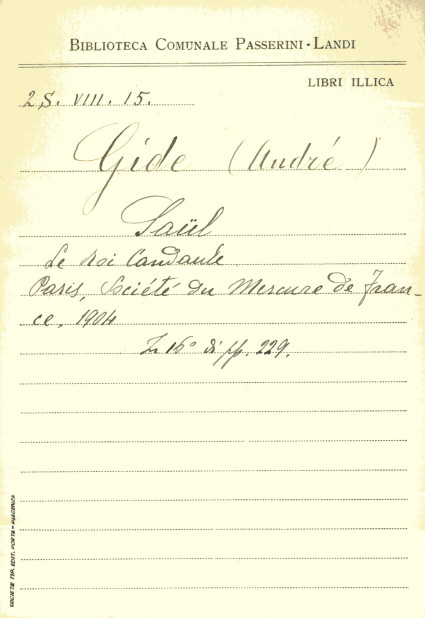 BIBLIOTECA COMUNALE PASSERINI - LANDI
LIBRI ILLICA
2S. VIII. 15.
Gide (André)
Saül
Le Roi Candaule
Paris, Société du Mercure de Fran-
ce, 1904
In 16° di pp. 229.
SOCIETÀ TIP. EDIT. PORTA - PIACENZA